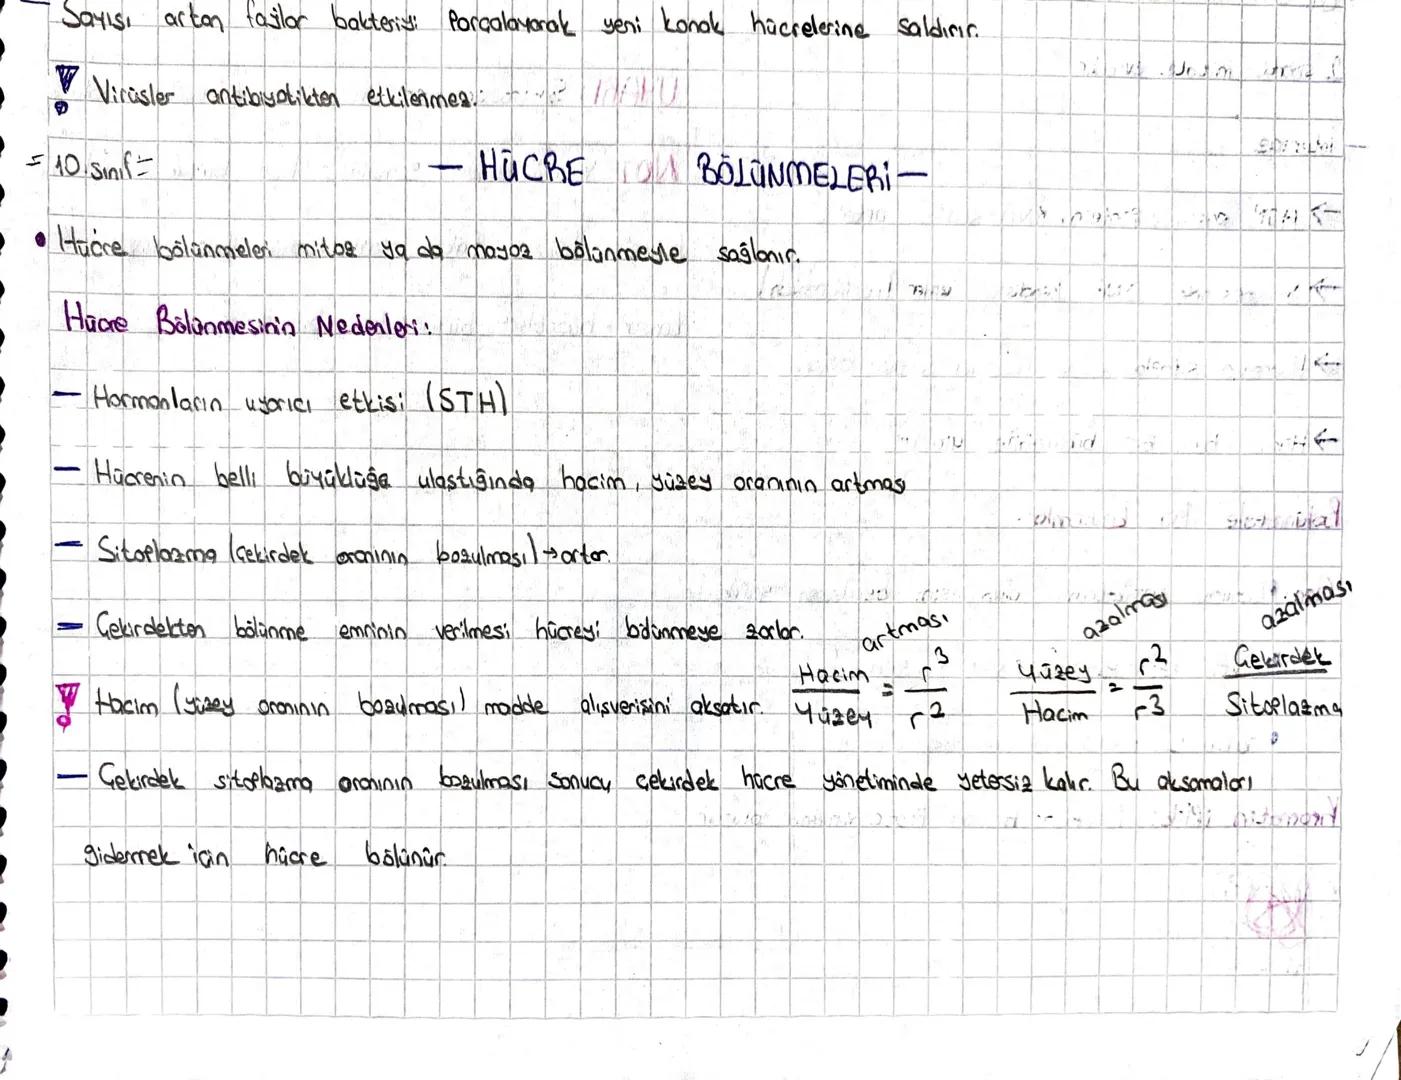 Sayısı artan fajlar bakteriyi parçalayarak yeni konak hücrelerine saldırır.
Virüsler antibiyotikten etkilenmez.
= 10. sınıf =
— HÜCRE BÖLÜNMELERİ —
• Hücre bölünmeleri mitoz ya da mayoz bölünmeyle sağlanır.
Hücre Bölünmesinin Nedenleri:
— Hormonların uyarıcı etkisi (STH)
— Hücrenin belli büyüklüğe ulaştığında hacim, yüzey oranının artması
— Sitoplazma (çekirdek oranının bozulması) → artar.
— Çekirdekten bölünme emrinin verilmesi hücreyi bölünmeye zorlar.
artması azalması azalması
Hacim / Yüzey = r³ / r² Yüzey / Hacim = r² / r³ Çekirdek / Sitoplazma
Hacim (yüzey oranının bozulması) madde alışverişini aksatır.
— Çekirdek sitoplazma oranının bozulması sonucu, çekirdek hücre yönetiminde yetersiz kalır. Bu aksamaları
gidermek için hücre bölünür.